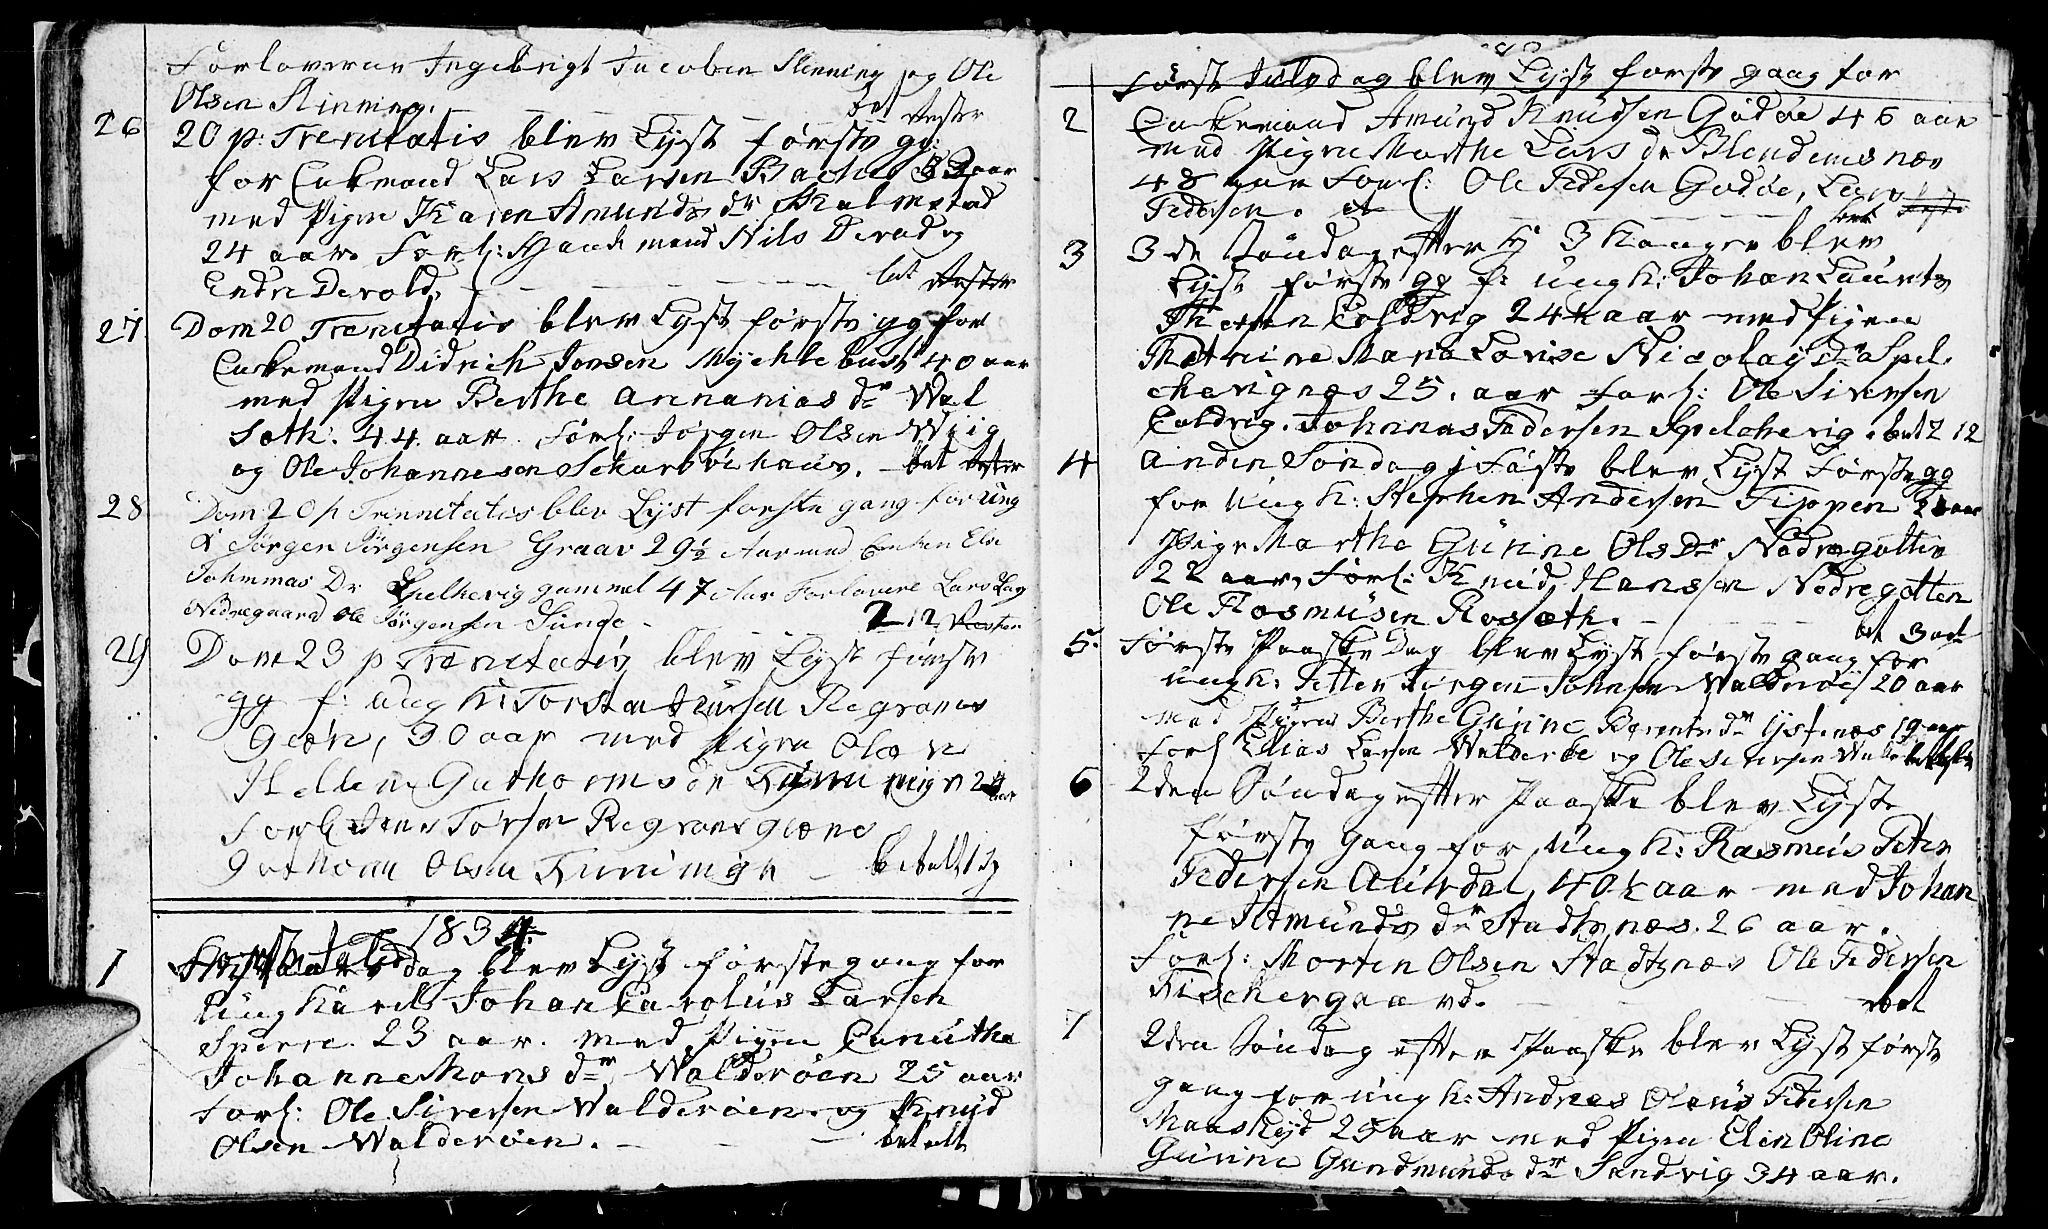 Forloverne Ingebrigt Jacobsen Slinning og Ole
Olsen Slinning. bet Rester
26 20 p: Trenitatis blev Lyst første gg:
for Enkmand Lars Larsen Bache 32 aar
med Pigen Karen Amunds dr Kalmetad
24 aar. Forl: Haade mand Nils Derad og
Endre Derold, bet Rester
27 Dom 20 Trenitatis blev Lyst første gg for
Enkemand Didrich Jonsen Myehlebust 40 aar
med Pigen Berthe Annanias dr Wal
Sæth. 44 aar. Forl: Jørgen Olsen Wiig
og Ole Johannesen Skarbøehaus. bet Rester
28 Dom 20 p Trinnitatis blev Lyst første gang for ung
K Jørgen Jørgensen Graav 29½ Aar med Enken Else
Johannas Dr Spelkevig gammel 47 Aar Forlovere Lars
Nedregaard Ole Jørgensen Sunde 2 12 Rester
29 Dom 23 p Trenitatis blev Lyst første
gg f: ung k: Torsten Iversen Regrands
Glæn, 30 aar med Pigen Olæn
Hellene Guthorms dr 24 aar
Forl Jens Torsen Regransglæne
Guthorm Olsen betalt
1834
1 dag blev Lyst første gang for
Ung Karl Johan Carolus Larsen
Sperre. 23 aar. med Pigen Canutha
Johanne Mons dr, Walderøen 25 aar
Forl: Ole Siversen Walderøen og Knud
Olsen Walderøen. betalt
først Juledag blev Lyst første gaag for
2 Enkemand Amund Knudsen Godøe 46 aar
med Pigen Marthe Lars dr Blendemsnæs
48 aar Forl: Ole Pedersen Godøe, Lars
Pedersen. bet
3 3de Søndag efter H 3 Konger blev
Lyst første gg f: ungk: Johan Laurits
Coldvig 24½ aar med Pigen
Thatrine Maria Lovise Nicolay Dr Spel-
chevignæs 25. aar Forl: Ole Siversen
Coldvig. Johannas Pedersen Spelchevig. bet 2 12
4 Anden Søndag i Faste blev Lyst Første gg
for Ungk: Stephen Andersen Tippen aar
Pige Marthe Gurine Ols Dr Nedregotten
22 aar, Forl: Knud Hanssen Nedregotten
Ole Rasmusen Rossæth. bet 3 ort
5. Første Paaske Dag blev Lyst første gang for
ungk: Petter Jørgen Johnsen Walderøe 20 aar
med Pigen Berthe Gurine Berents dr Ystenæs 19 aar
Forl Elias Larsen Walderøe og Ole Siversen
6 2den Søndag efter Paaske blev Lyst
første Gang for Ungk: Rasmus Peter
Pedersen Aursdal, 40½ aar med Johan
ne Amunds dr Stadtznæs. 26 aar.
Forl: Morten Olsen Stadtznæs Ole Pedersen
Fischergaard. bet
7 2den Søndag efter Paaske blev Lyst første
gang for ungk: Andreas Olaus Pedersen
Maaskyd 25 aar med Pigen Elen Oline
Gurine Gundmunds dr Sandvig 34 aar.